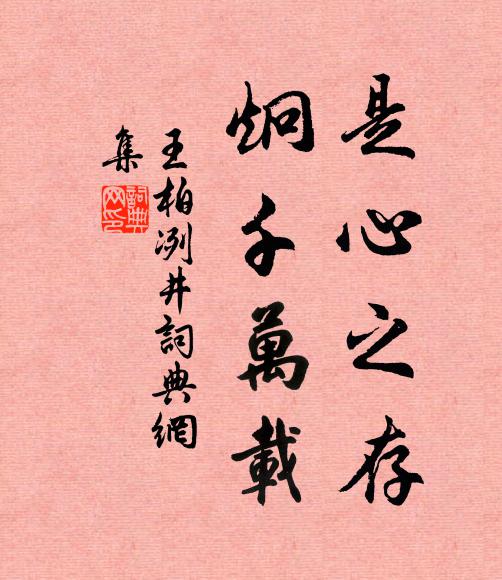 是心之存
炯千萬載
王柏冽井詞典網
集
詞典網印